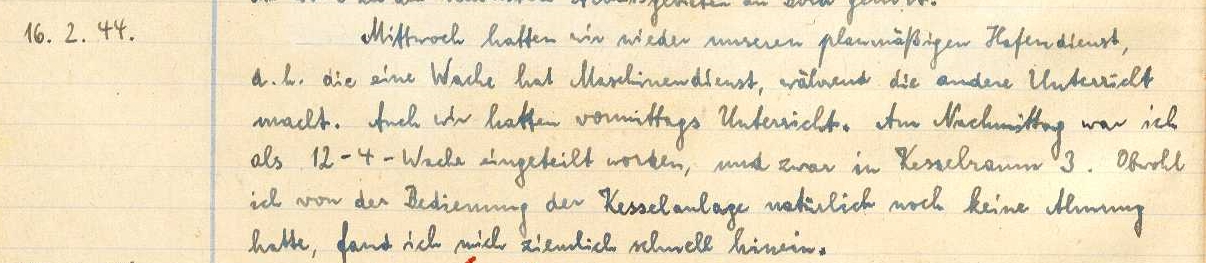 16. 2. 44. Mittwoch hatten wir wieder unseren planmäßigen Hafendienst,
d. h. die eine Wache hat Maschinendienst, während die andere Unterricht
macht. Auch wir hatten vormittags Unterricht. Am Nachmittag war ich
als 12-4-Wache eingeteilt worden, und zwar in Kesselraum 3. Obwohl
ich von der Bedienung der Kesselanlage natürlich noch keine Ahnung
hatte, fand ich mich ziemlich schnell hinein.